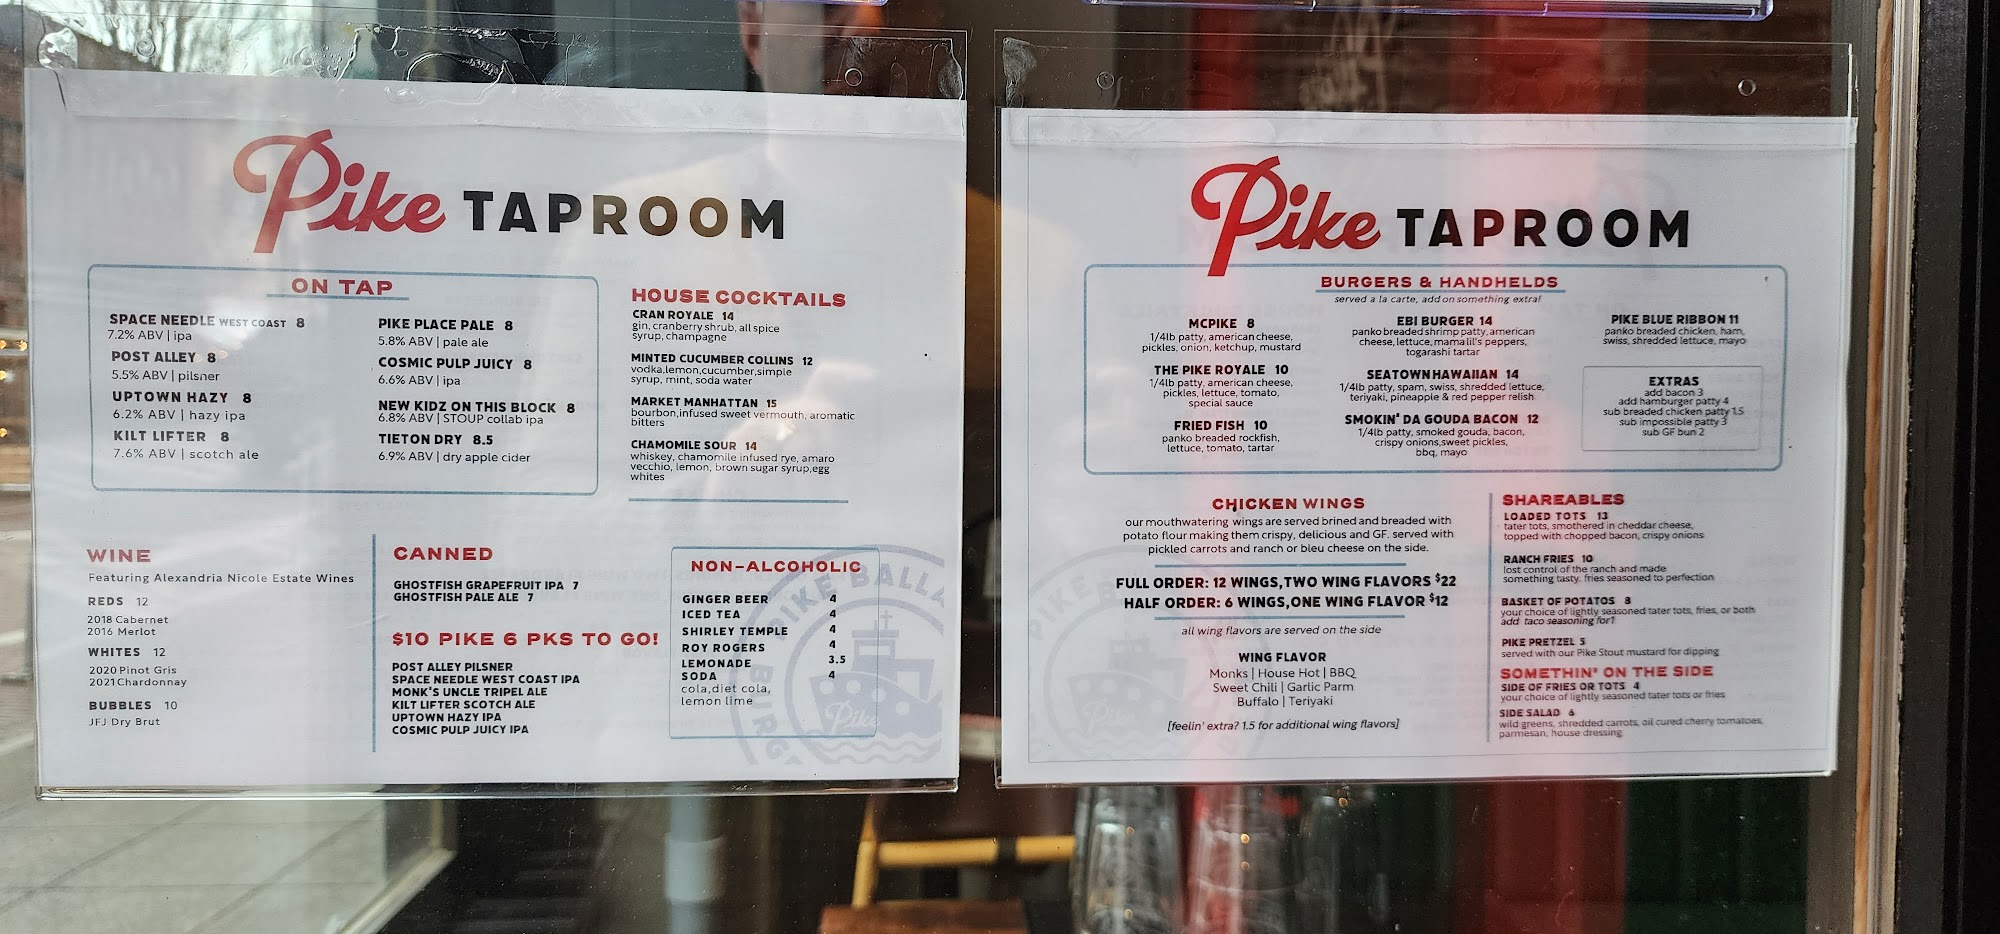 Pike TAPROOM
ON TAP
SPACE NEEDLE WEST COAST 8
7.2% ABV | ipa
POST ALLEY 8
5.5% ABV | pilsner
UPTOWN HAZY 8
6.2% ABV | hazy ipa
KILT LIFTER 8
7.6% ABV | scotch ale
PIKE PLACE PALE 8
5.8% ABV | pale ale
COSMIC PULP JUICY 8
6.6% ABV | ipa
NEW KIDZ ON THIS BLOCK 8
6.8% ABV | STOUP collab ipa
TIETON DRY 8.5
6.9% ABV | dry apple cider
HOUSE COCKTAILS
CRAN ROYALE 14
gin, cranberry shrub, all spice
syrup, champagne
MINTED CUCUMBER COLLINS 12
vodka,lemon,cucumber,simple
syrup, mint, soda water
MARKET MANHATTAN 15
bourbon,infused sweet vermouth, aromatic
bitters
CHAMOMILE SOUR 14
whiskey, chamomile infused rye, amaro
vecchio, lemon, brown sugar syrup,egg
whites
WINE
Featuring Alexandria Nicole Estate Wines
REDS 12
2018 Cabernet
2016 Merlot
WHITES 12
2020 Pinot Gris
2021 Chardonnay
BUBBLES 10
JFJ Dry Brut
CANNED
GHOSTFISH GRAPEFRUIT IPA 7
GHOSTFISH PALE ALE 7
$10 PIKE 6 PKS TO GO!
POST ALLEY PILSNER
SPACE NEEDLE WEST COAST IPA
MONK'S UNCLE TRIPEL ALE
KILT LIFTER SCOTCH ALE
UPTOWN HAZY IPA
COSMIC PULP JUICY IPA
NON-ALCOHOLIC
GINGER BEER 4
ICED TEA 4
SHIRLEY TEMPLE 4
ROY ROGERS 4
LEMONADE 3.5
SODA 4
cola,diet cola,
lemon lime
PIKE BALLA
Pike
Pike TAPROOM
BURGERS & HANDHELDS
served a la carte, add on something extra!
MCPIKE 8
1/4lb patty, american cheese,
pickles, onion, ketchup, mustard
THE PIKE ROYALE 10
1/4lb patty, american cheese,
pickles, lettuce, tomato,
special sauce
FRIED FISH 10
panko breaded rockfish,
lettuce, tomato, tartar
EBI BURGER 14
panko breaded shrimp patty, american
cheese, lettuce, mama lil's peppers,
togarashi tartar
SEATOWN HAWAIIAN 14
1/4lb patty, spam, swiss, shredded lettuce,
teriyaki, pineapple & red pepper relish
SMOKIN' DA GOUDA BACON 12
1/4lb patty, smoked gouda, bacon,
crispy onions,sweet pickles,
bbq, mayo
PIKE BLUE RIBBON 11
panko breaded chicken, ham,
swiss, shredded lettuce, mayo
EXTRAS
add bacon 3
add hamburger patty 4
sub breaded chicken patty 1.5
sub impossible patty 3
sub GF bun 2
CHICKEN WINGS
our mouthwatering wings are served brined and breaded with
potato flour making them crispy, delicious and GF. served with
pickled carrots and ranch or bleu cheese on the side.
FULL ORDER: 12 WINGS,TWO WING FLAVORS $22
HALF ORDER: 6 WINGS,ONE WING FLAVOR $12
all wing flavors are served on the side
WING FLAVOR
Monks | House Hot | BBQ
Sweet Chili | Garlic Parm
Buffalo | Teriyaki
[feelin' extra? 1.5 for additional wing flavors]
SHAREABLES
LOADED TOTS 13
tater tots, smothered in cheddar cheese,
topped with chopped bacon, crispy onions
RANCH FRIES 10
lost control of the ranch and made
something tasty. fries seasoned to perfection
BASKET OF POTATOS 8
your choice of lightly seasoned tater tots, fries, or both
add taco seasoning for 1
PIKE PRETZEL 5
served with our Pike Stout mustard for dipping
SOMETHIN' ON THE SIDE
SIDE OF FRIES OR TOTS 4
your choice of lightly seasoned tater tots or fries
SIDE SALAD 6
wild greens, shredded carrots, oil cured cherry tomatoes,
parmesan, house dressing